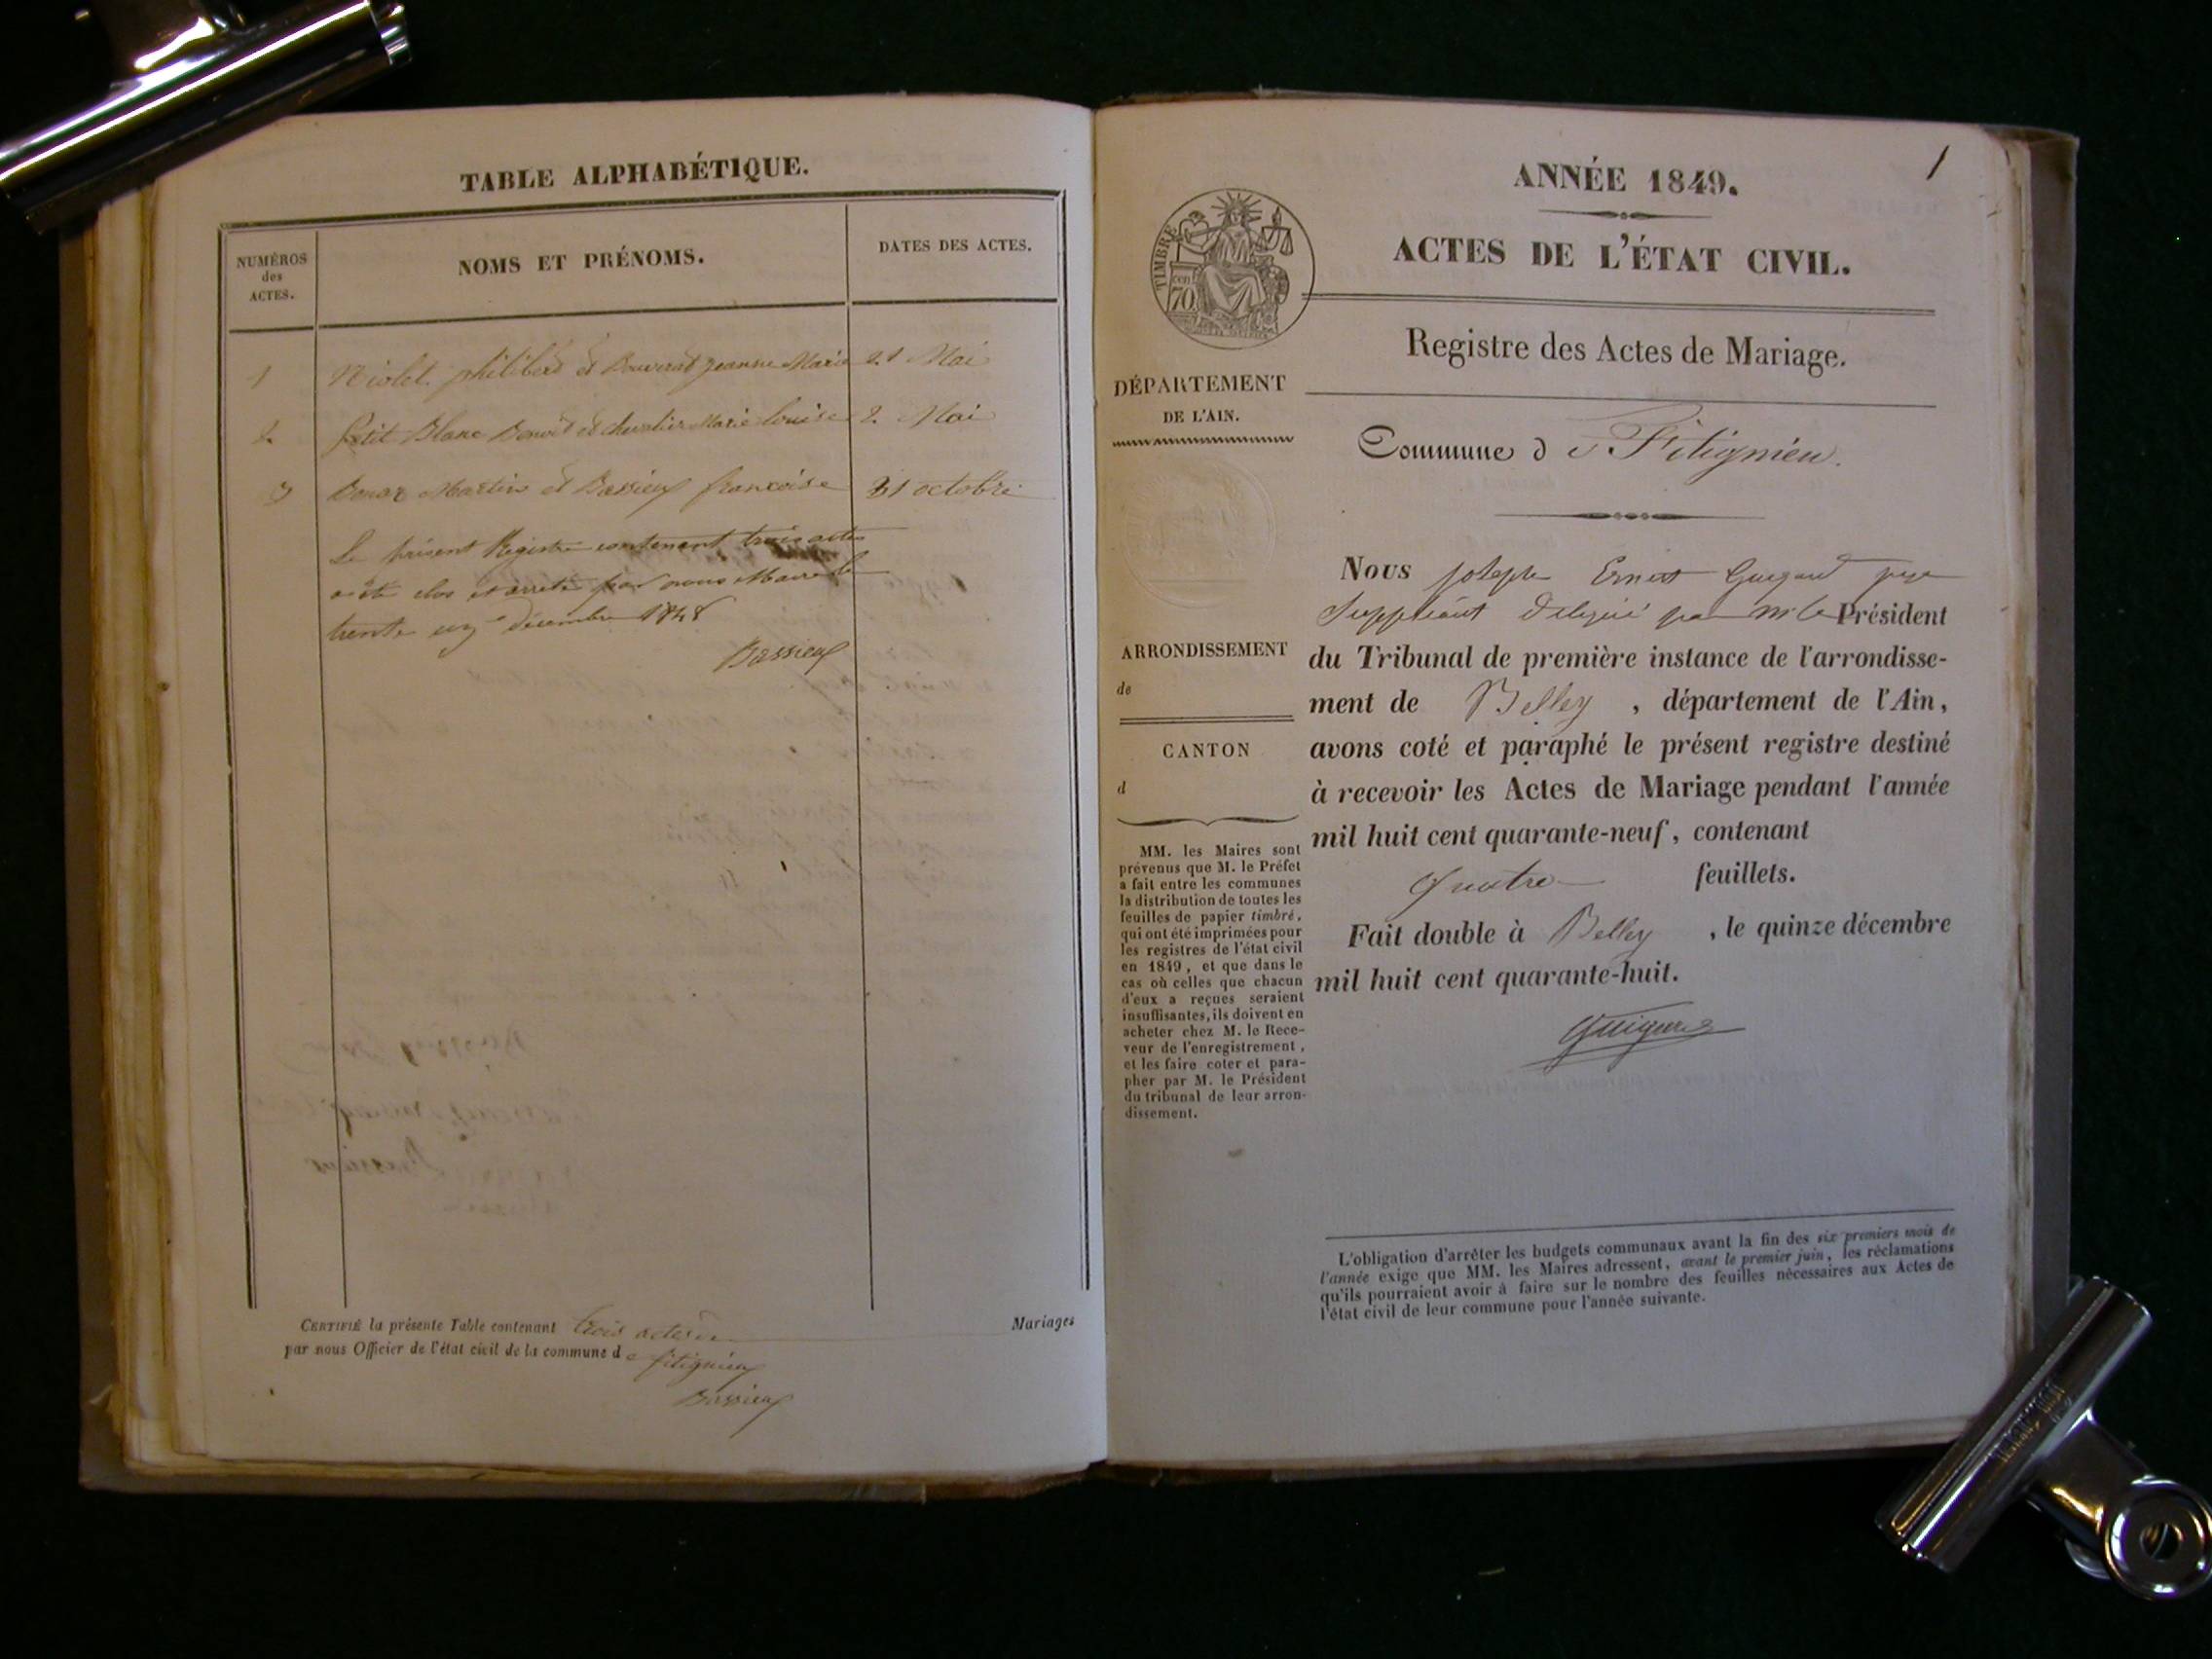 TABLE ALPHABÉTIQUE.
NUMÉROS
des
ACTES.
NOMS ET PRÉNOMS.
DATES DES ACTES.
1 Violet philibert et Bouverat jeanne Marie 21 Mai
2 petit Blanc Benoit et chevalier Marie louise 2 Mai
3 Martin et Bassieux françoise 31 octobre
Le présent Registre contenant trois actes
a été clos et arrêté par nous Maire le
trente un décembre 1848
Bassieux
CERTIFIÉ la présente Table contenant trois actes de Mariages
par nous Officier de l'état civil de la commune de fitignieu
Bassieux
1
ANNÉE 1849.
ACTES DE L'ÉTAT CIVIL.
TIMBRE
70
Registre des Actes de Mariage.
DÉPARTEMENT
DE L'AIN.
Commune de Fitignieu.
ARRONDISSEMENT
de
CANTON
d
MM. les Maires sont
prévenus que M. le Préfet
a fait entre les communes
la distribution de toutes les
feuilles de papier timbré,
qui ont été imprimées pour
les registres de l'état civil
en 1849, et que dans le
cas où celles que chacun
d'eux a reçues seraient
insuffisantes, ils doivent en
acheter chez M. le Rece-
veur de l'enregistrement,
et les faire coter et para-
pher par M. le Président
du tribunal de leur arron-
dissement.
Nous joseph Ernest juge
Suppléant délégué par M le Président
du Tribunal de première instance de l'arrondisse-
ment de Belley, département de l'Ain,
avons coté et paraphé le présent registre destiné
à recevoir les Actes de Mariage pendant l'année
mil huit cent quarante-neuf, contenant
Quatre feuillets.
Fait double à Belley, le quinze décembre
mil huit cent quarante-huit.
L'obligation d'arrêter les budgets communaux avant la fin des six premiers mois de
l'année exige que MM. les Maires adressent, avant le premier juin, les réclamations
qu'ils pourraient avoir à faire sur le nombre des feuilles nécessaires aux Actes de
l'état civil de leur commune pour l'année suivante.